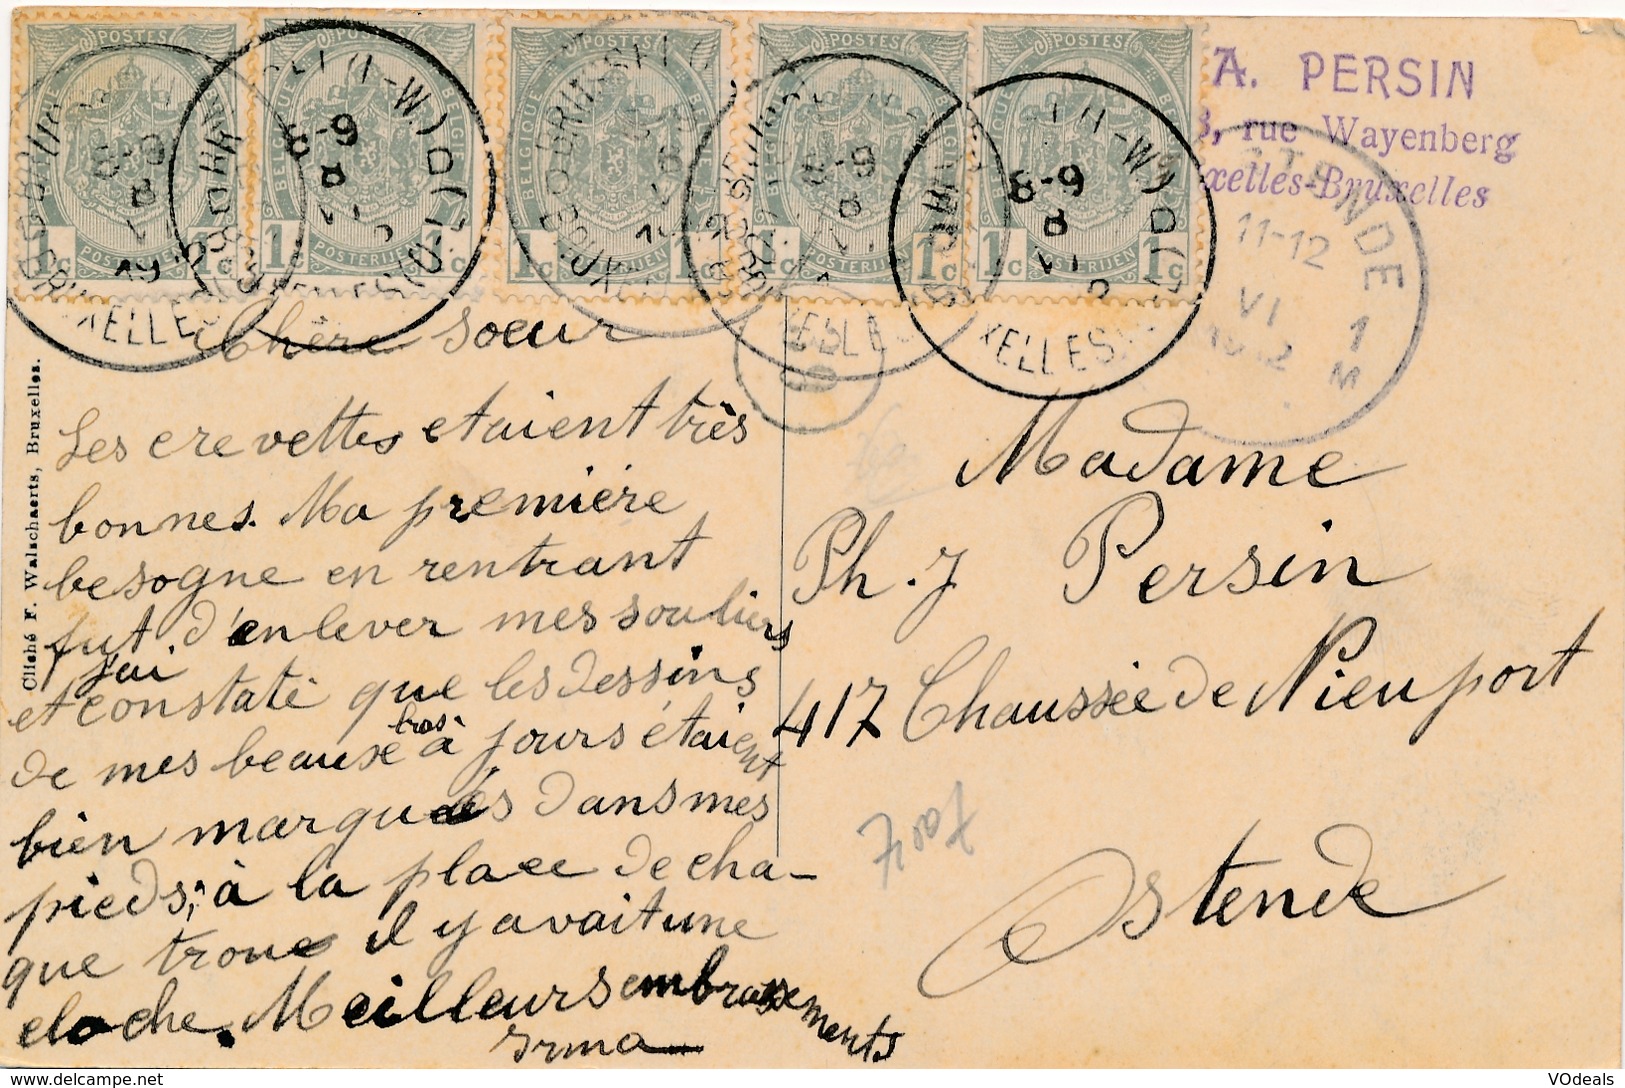 POSTES
BELGIQUE BELGIE
1c 1c
POSTERIJEN
POSTES
BELGIQUE BELGIE
1c 1c
POSTERIJEN
POSTES
BELGIQUE BELGIE
1c 1c
POSTERIJEN
POSTES
BELGIQUE BELGIE
1c 1c
POSTERIJEN
POSTES
BELGIQUE BELGIE
1c 1c
POSTERIJEN
8-9
8
VI
A. PERSIN
rue Wayenberg
xelles-Bruxelles
11-12
VI
Cliché F. Walschaerts, Bruxelles.
Chère soeur
Les crevettes etaient très
bonnes. Ma première
besogne en rentrant
fut d'enlever mes souliers
et j'ai constaté que les dessins
de mes beaux bas à jours étaient
bien marqués dans mes
pieds; à la place de cha-
que troue il y avait une
cloche. Meilleurs embrassements
Irma
Madame
Ph. J Persin
417 Chaussée de Nieuport
Ostende
VOdeals